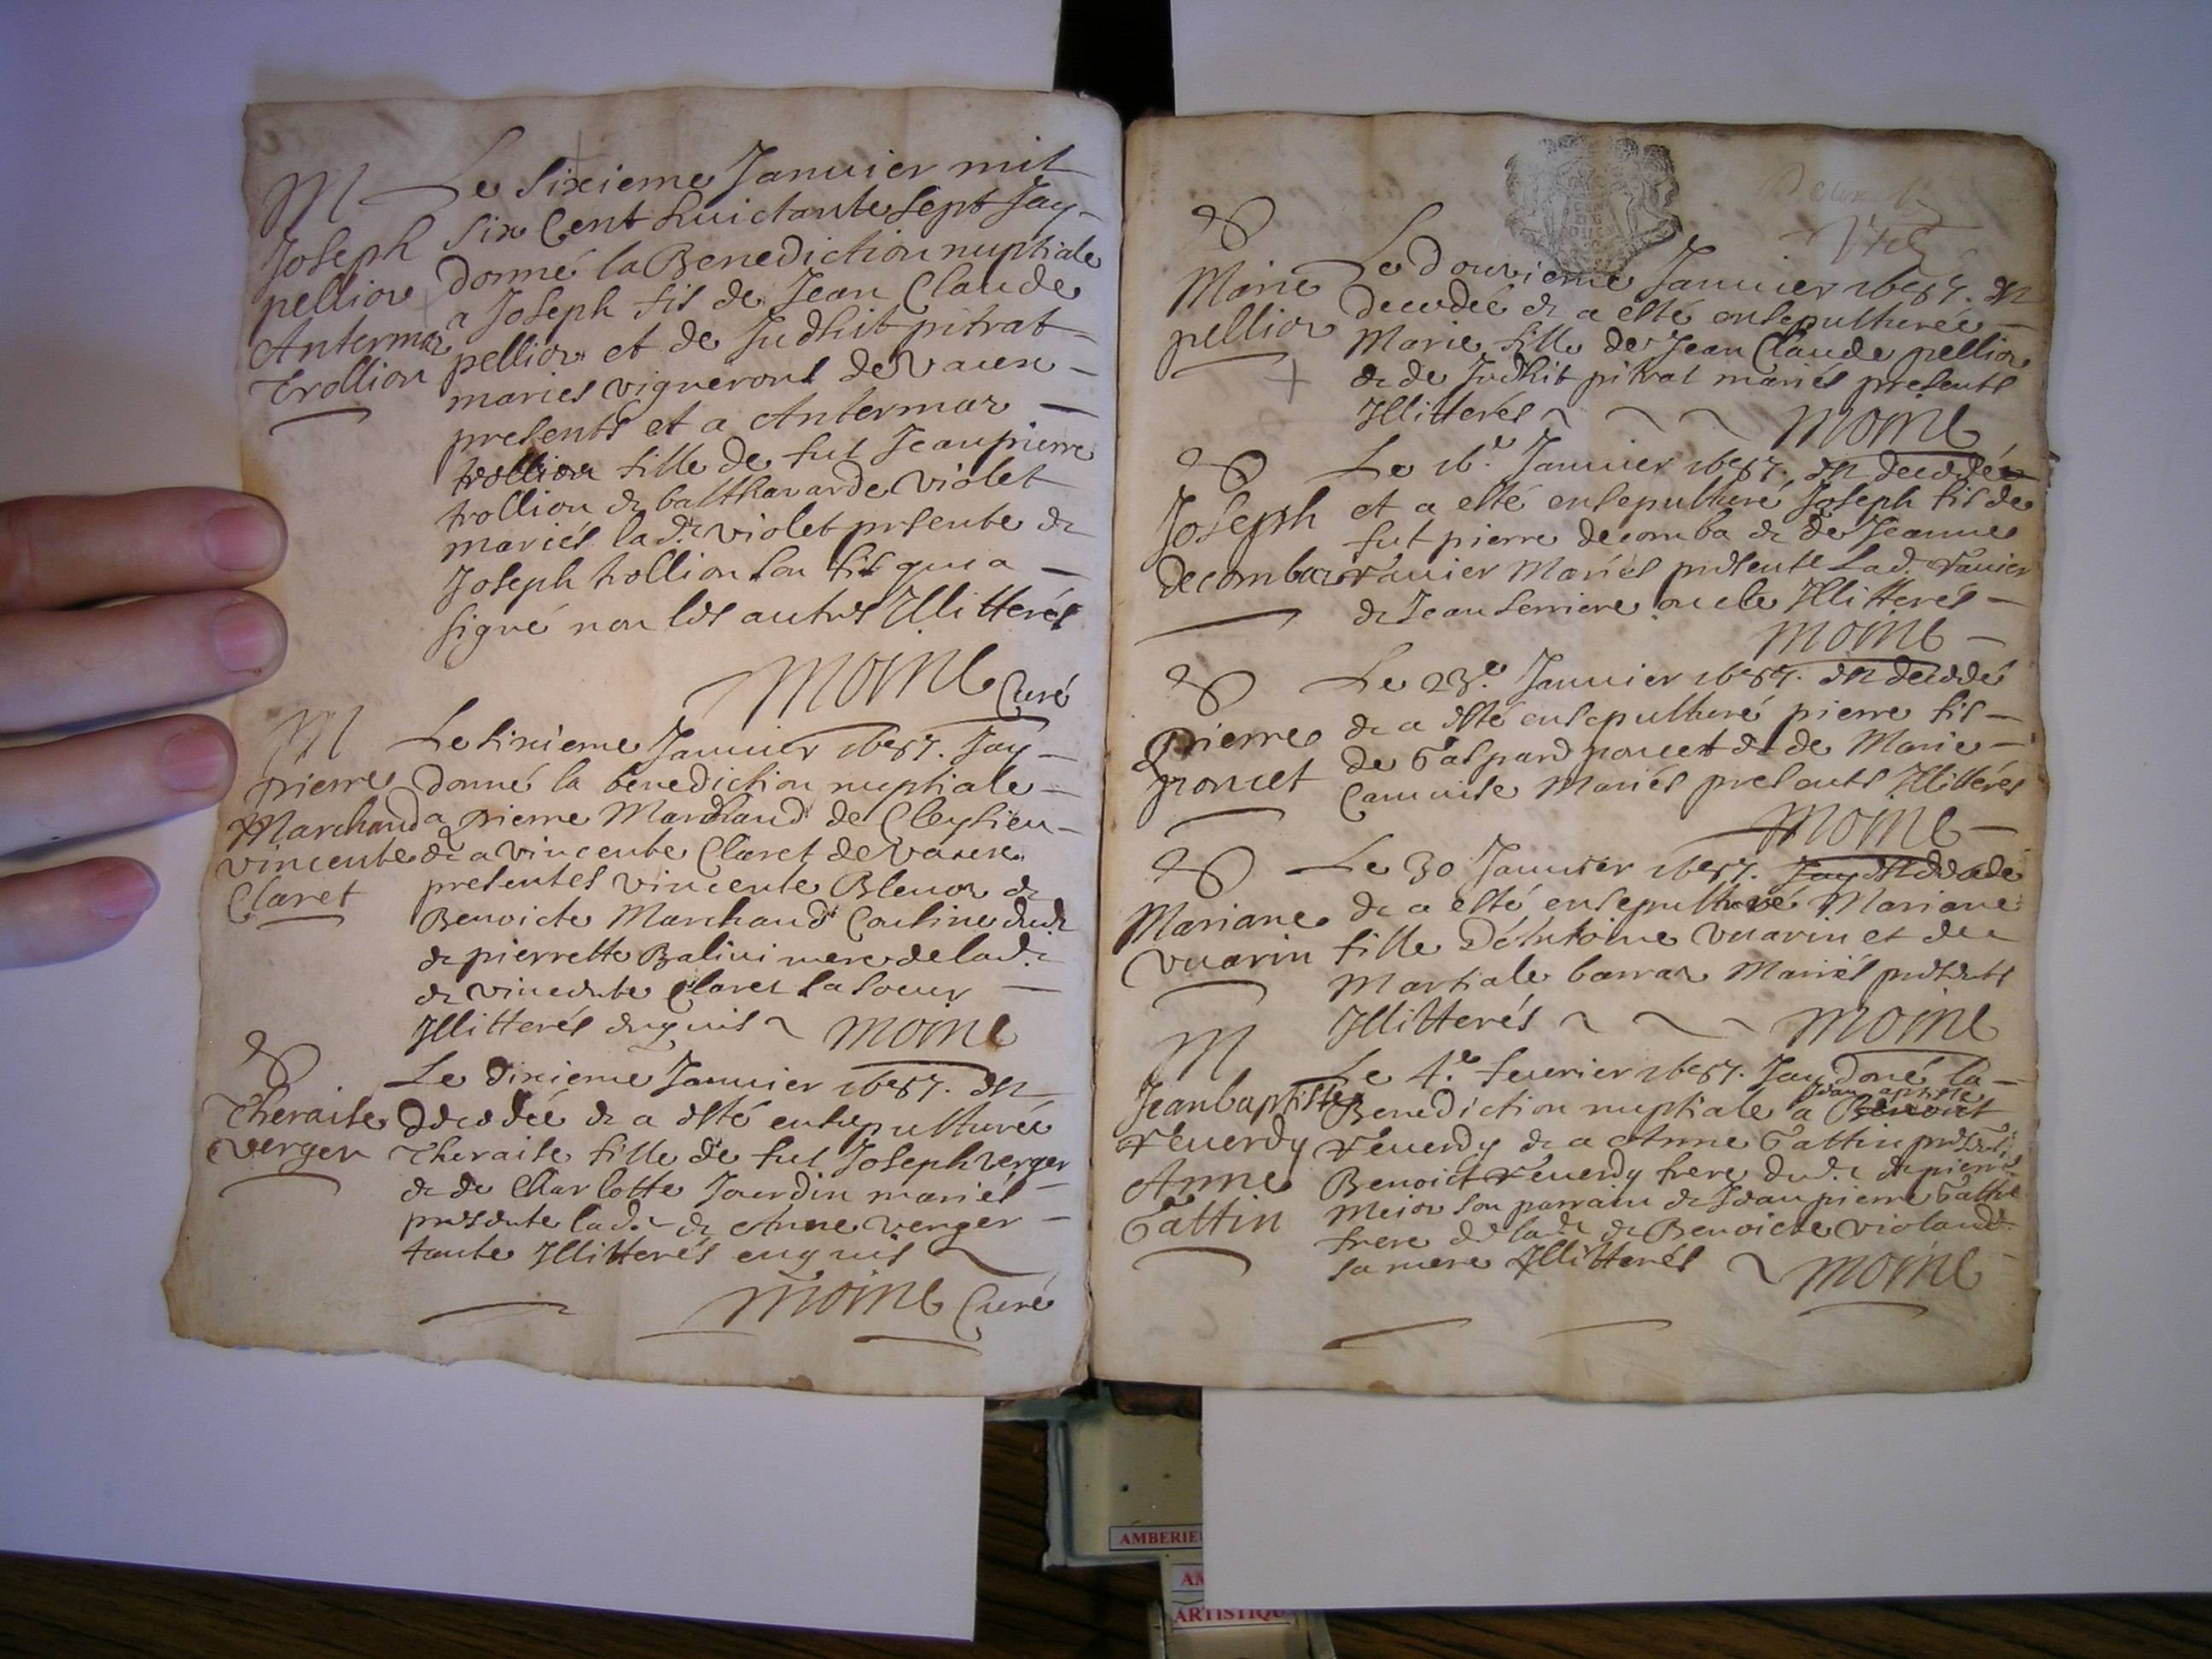 M
Joseph
pellion
Antermoz
Trollion
Le Sixieme Januier mil
Six Cent huictante Sept Jay
donné la Benediction nuptiale
a Joseph fils de Jean Claude
pellion et de Judhit pitrat
mariés vignerons de Vaux
presents et a Antermoz
trollion fille de fut Jeanpierre
trollion & balthazarde Violet
mariés lad.e Violet presente &
Joseph trollion son fils qui a
signé non les autres Illitterés
Moine Curé
M
pierre
Marchand
vincente
Claret
Le sixieme Januier 1687. Jay
donné la benediction nuptiale
a pierre Marchand de Cleysieu
& a vincente Claret de Vaux
presentes vincente &
Benoicte Marchand Cousine dud.
& pierrette Balivi mere de lad.
& vincente Claret sa soeur
Illitterés enquis Moine
Theraise
verger
Le dixieme Januier 1687. est
decedée & a esté ensepulturée
Theraise fille de fut Joseph verger
& de Charlotte Jourdin mariés
presente lad. & Anne verger
tante Illitterés enquis
Moine Curé
Marie
pellion
Le douzieme Januier 1687. est
decedée & a esté ensepulturée
Marie fille de Jean Claude pellion
& de Judhit pitrat mariés presents
Illitterés Moine
Joseph
decombaz
Le 16.e Januier 1687. est decedé
et a esté ensepulturé Joseph fils de
fut pierre decomba & de Jeanne
ravier Mariés presente Lad. ravier
& Jean Serriere oncle Illitterés
Moine
pierre
poncet
Le 23.e Januier 1687. est decedé
& a esté ensepulturé pierre fils
de Gaspard poncet & de Marie
Mariés presents Illitterés
Moine
Mariane
Vuarin
Le 30 Januier 1687. Jay est decede
& a esté ensepulturé Mariane
fille D'Antoine Vuarin et de
Martiale barraz Mariés presents
Illitterés Moine
M
Jeanbaptiste
reuerdy
Anne
Gattin
Le 4.e feurier 1687. Jay doné la
Jean baptiste
Benediction nuptiale a Benoict
reuerdy & a Anne Gattin presents
Benoict reuerdy frere dud. & pierre
son parrain & Jeanpierre Gattin
frere de lad.e & Benoicte violand
sa mere Illitterés Moine
AMBERIE
ARTISTIQU